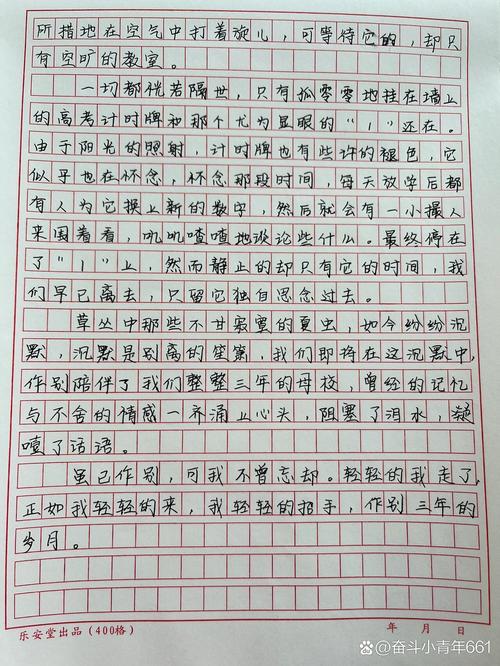 所措地在空气中打着旋儿，可等待它的，却只
有空旷的教室。
一切都恍若隔世，只有孤零零地挂在墙上
的高考计时牌和那个尤为显眼的"1"还在。
由于阳光的照射，计时牌也有些许的褪色，它
似乎也在怀念，怀念那段时间，每天放学后都
有人为它换上新的数字，然后就会有一小撮人
来围着看，叽叽喳喳地谈论些什么。最终停在
了"1"上，然而静止的却只有它的时间，我
们早已离去，只留它独自思念过去。
草丛中那些不甘寂寞的夏虫，如今纷纷沉
默，沉默是别离的笙箫，我们即将在这沉默中，
作别陪伴了我们整整三年的母校，曾经的记忆
与不舍的情感一齐涌上心头，阻塞了泪水，凝
噎了话语。
虽已作别，可我不曾忘却。轻轻的我走了，
正如我轻轻的来，我轻轻的招手，作别三年的
岁月。
乐安堂出品（400格） 年 月 日
百家号@奋斗小青年661